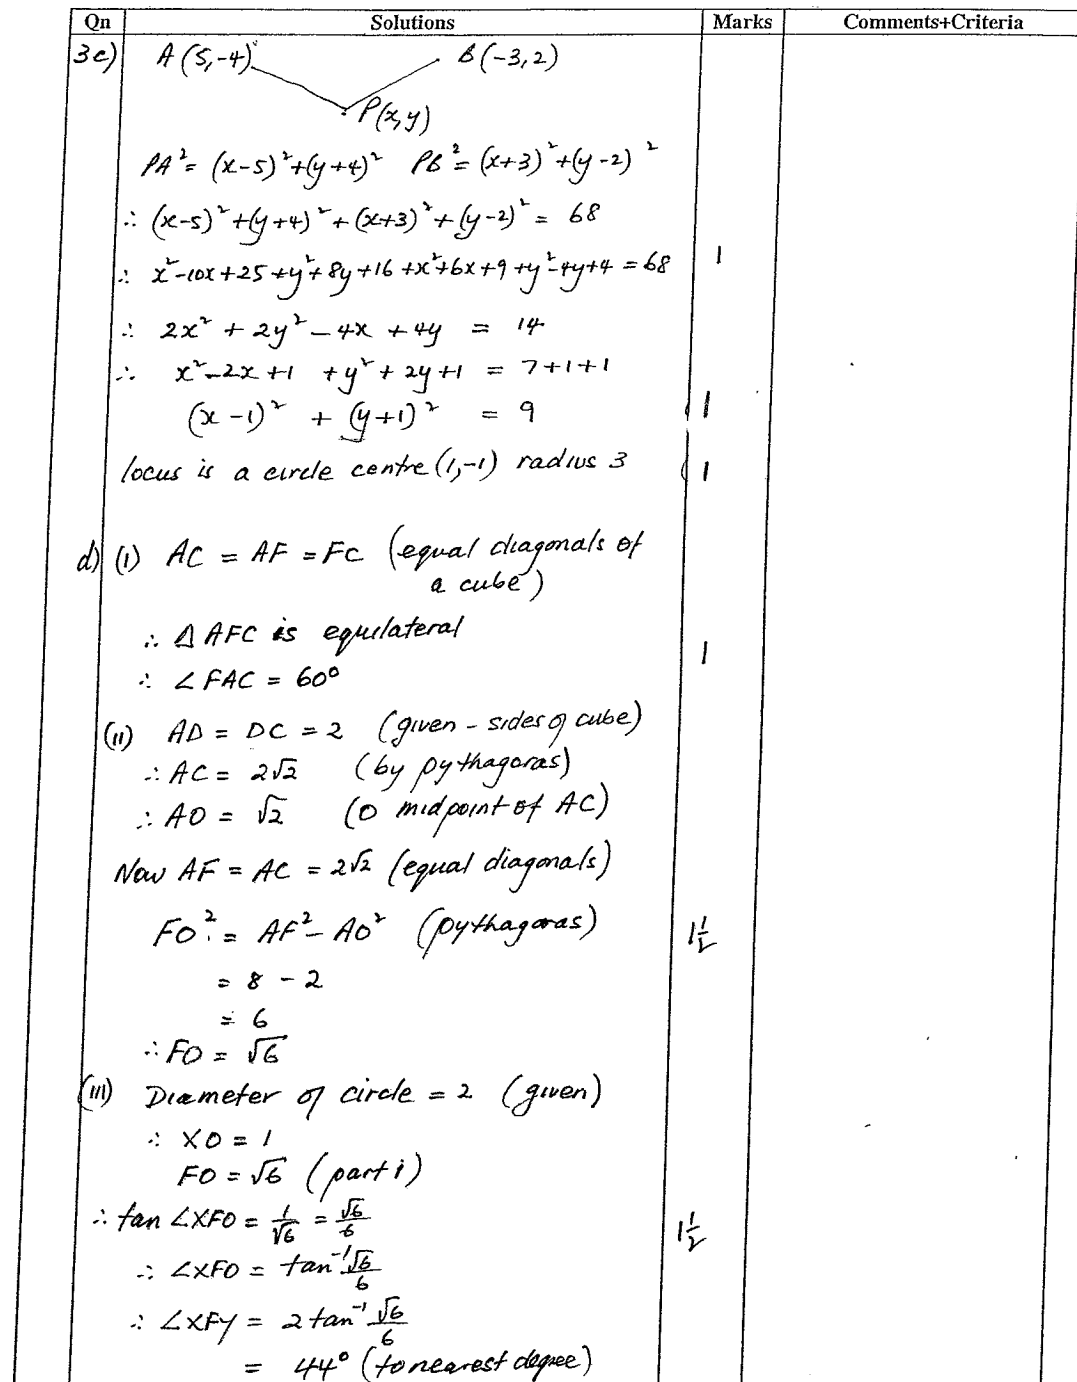 Qn Solutions Marks Comments+Criteria
3c) A(5,-4) B(-3,2)
P(x,y)
PA² = (x-5)²+(y+4)² PB² = (x+3)²+(y-2)²
∴ (x-5)²+(y+4)²+(x+3)²+(y-2)² = 68
∴ x²-10x+25+y²+8y+16+x²+6x+9+y²-4y+4=68 1
∴ 2x² + 2y² - 4x + 4y = 14
∴ x²-2x+1 + y²+2y+1 = 7+1+1
(x-1)² + (y+1)² = 9 1
locus is a circle centre (1,-1) radius 3 1
d) (i) AC = AF = FC (equal diagonals of
a cube)
∴ Δ AFC is equilateral
∴ ∠FAC = 60° 1
(ii) AD = DC = 2 (given - sides of cube)
∴ AC = 2√2 (by pythagoras)
∴ AO = √2 (O midpoint of AC)
Now AF = AC = 2√2 (equal diagonals)
FO² = AF² - AO² (pythagoras) 1½
= 8 - 2
= 6
∴ FO = √6
(iii) Diameter of circle = 2 (given)
∴ XO = 1
FO = √6 (part i)
∴ tan ∠XFO = 1/√6 = √6/6 1½
∴ ∠XFO = tan⁻¹ √6/6
∴ ∠XFY = 2 tan⁻¹ √6/6
= 44° (to nearest degree)